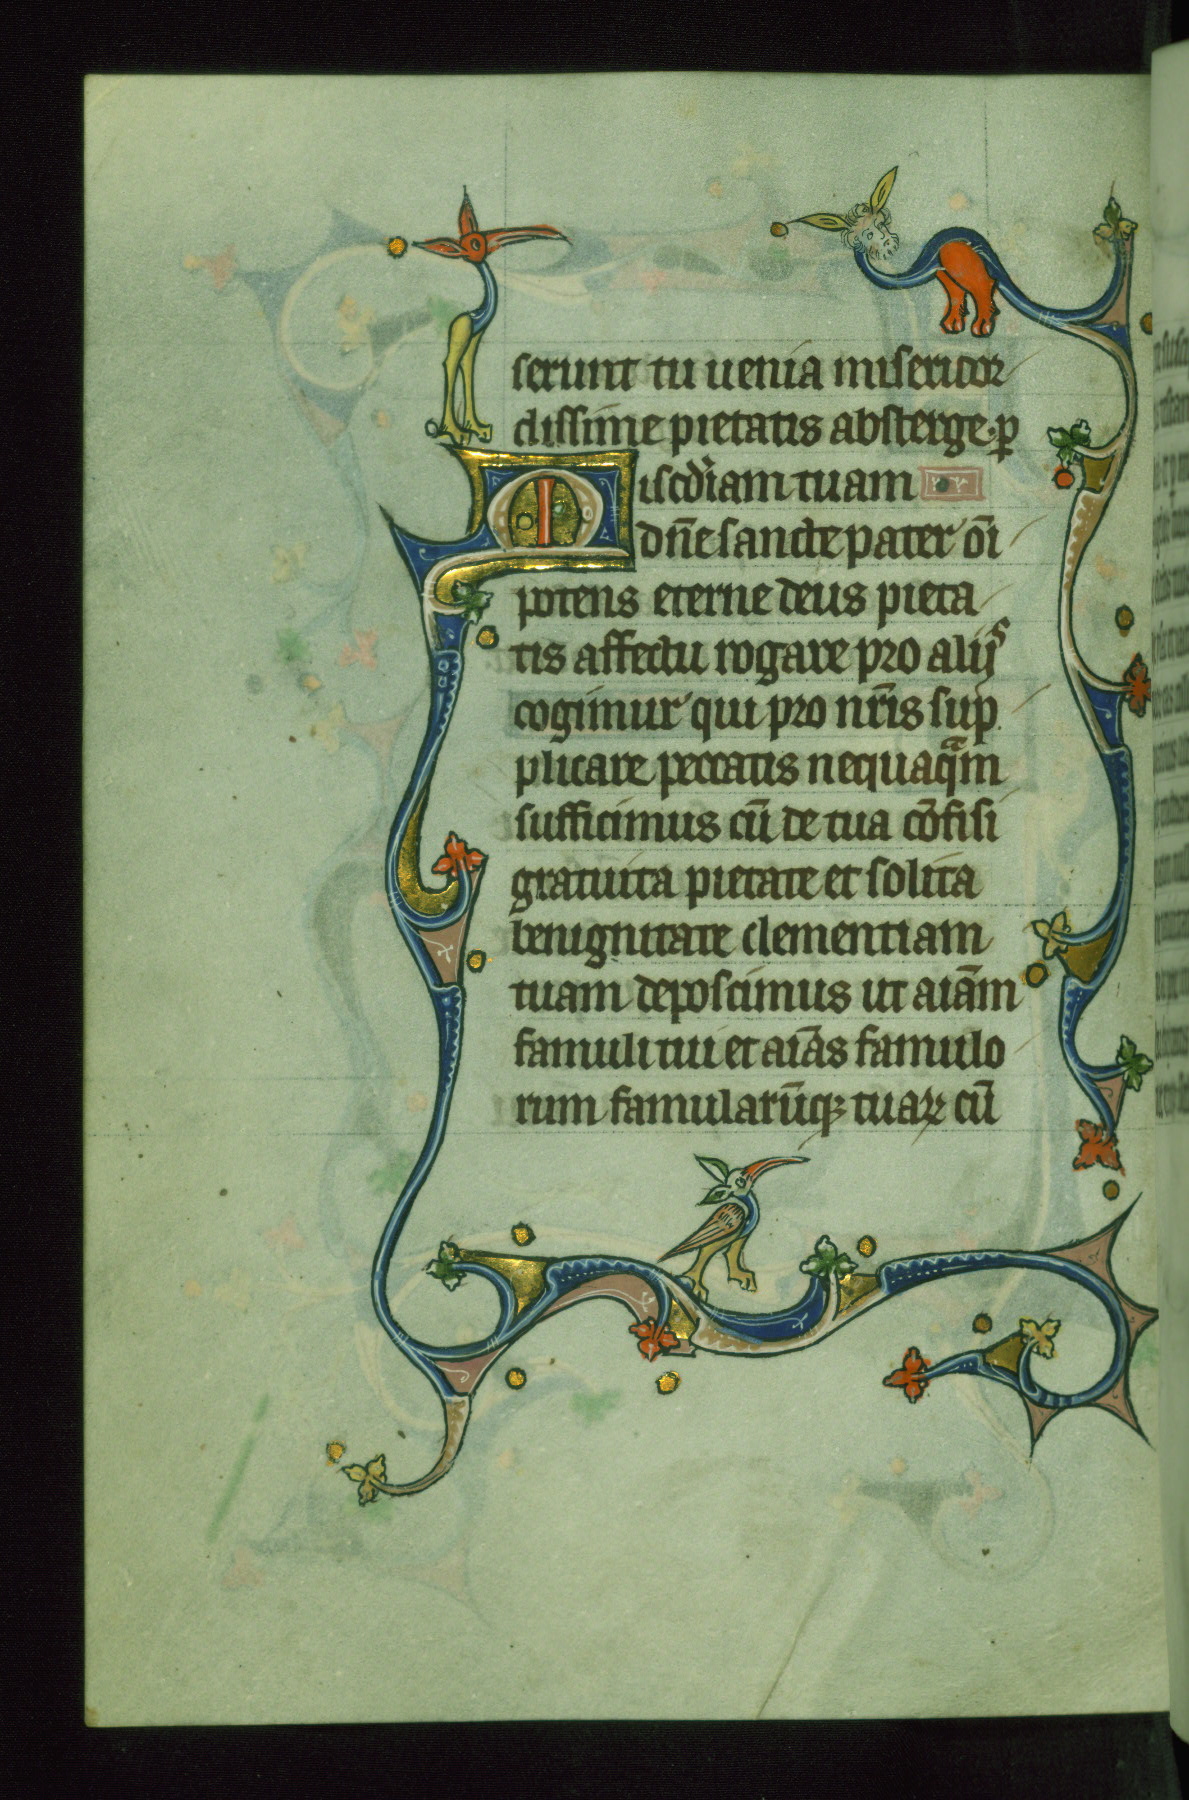 serunt tu uenia misericor
dissime pietatis absterge· ꝑ
Miscd̾iam tuam
dn̄e sancte pater om̄i
potens eterne deus pieta
tis affectu rogare pro alijs
cogimur qui pro nr̄is sup
plicare peccatis nequaqᷓm
sufficimus cū de tua cōfisi
gratuita pietate et solita
benignitate clementiam
tuam deposcimus ut aīam
famuli tui et aīas famulo
rum famularūqꝫ tuaꝝ cū